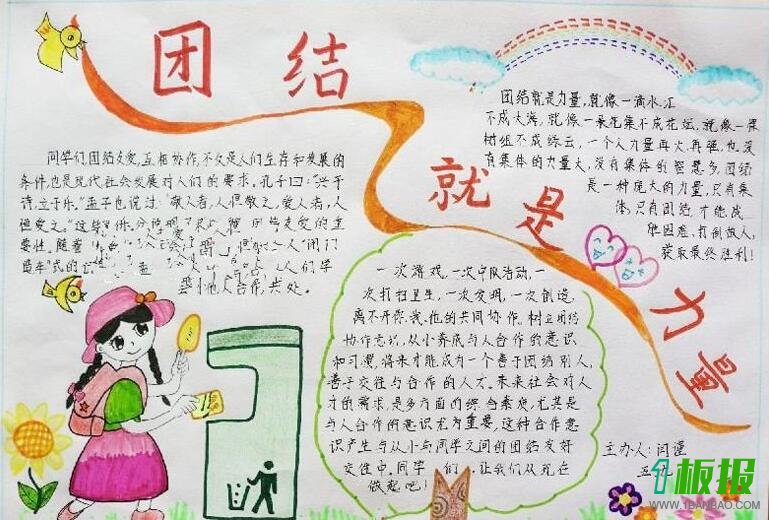 团结
就是
力量
同学们,团结友爱,互相协作,不仅是人们生存和发展的
条件,也是现代社会发展对人们的要求。孔子曰:“兴于
诗,立于乐。”孟子也说过:“敬人者,人恒敬之,爱人者,人
恒爱之。”这
要性。随着
团结就是力量,就像一滴水,汇
不成大海,就像一朵花集不成花坛,就像一棵
树组不成绿云,一个人力量再大再强,也没
有集体的力量大,没有集体的智慧多,团结
是一种庞大的力量,只有集
体,只有团结,才能战
胜困难,打倒敌人,
获取最终胜利!
一次游戏,一次中队活动,一
次打扫卫生,一次发明,一次创造,
离不开你、我、他的共同协作。树立团结
协作意识,从小养成与人合作的意识
和习惯,将来才能成为一个善于团结别人,
善于交往与合作的人才。未来社会对人
才的需求,是多方面的综合素质,尤其是
与人合作的意识尤为重要,这种合作意
识产生与从小与同学之间的团结友好
交往中。同学们,让我们从现在
做起吧!
主办人:闫谨
五.九
1板报
WWW.1BANBAO.COM